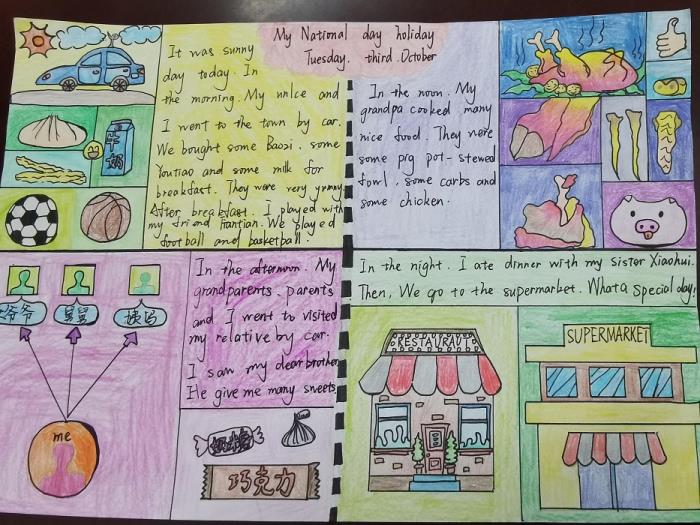 My National day holiday
Tuesday. third. October
It was sunny
day today. In
the morning. My unlce and
I went to the town by car.
We bought some Baozi. some
Youtiao and some milk for
breakfast. They were very yummy
After breakfast. I played with
my friend Hantian. We played
football and basketball.
牛奶
In the noon. My
grandpa cooked many
nice food. They were
some pig pot-stewed
fowl. some carbs and
some chicken.
爷爷
me
In the afternoon. My
grandparents. parents
and I went to visited
my relative by car.
I saw my dear brother
He give me many sweets
奶糖
巧克力
In the night. I ate dinner with my sister Xiaohui.
Then, We go to the supermarket. What a special day!
RESTAURAUT
SUPERMARKET